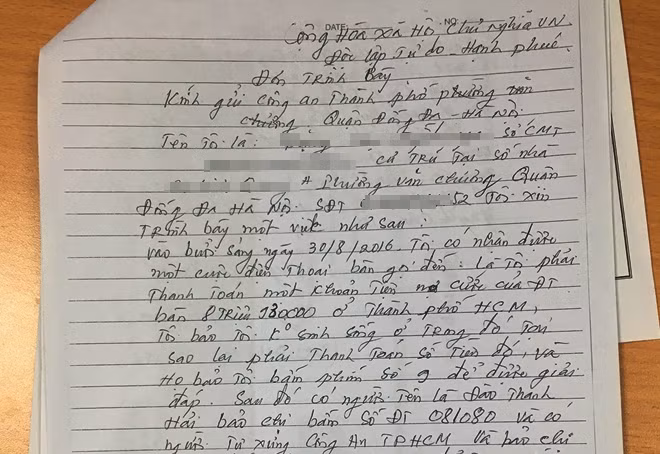 DATE: NO:
Cộng Hòa Xã Hội Chủ Nghĩa VN
Độc lập Tự do - Hạnh phúc.
Đơn Trình Bày
Kính gửi công an Thành phố phường văn
chương, Quận Đống Đa - Hà Nội.
Tên Tôi là: số CMT
cư trú tại số nhà
Phường văn chương Quận
Đống Đa Hà Nội. SĐT 52 Tôi xin
Trình bày một việc như sau:
vào buổi sáng ngày 30/8/2016. Tôi có nhận được
một cuộc điện thoại bàn gọi đến: là Tôi phải
Thanh Toán một khoản Tiền cước của ĐT
bàn 8 Triệu 930000 ở Thành phố HCM,
Tôi bảo Tôi K° sinh sống ở Trong đó Tại
sao lại phải Thanh Toán số Tiền đó, và
Họ bảo Tôi bấm phím số 9 để được giải
đáp. Sau đó có người Tên là Đào Thanh
Hải bảo chị bấm số ĐT 081080 và có
người Tự xưng Công An TPHCM và bảo chị